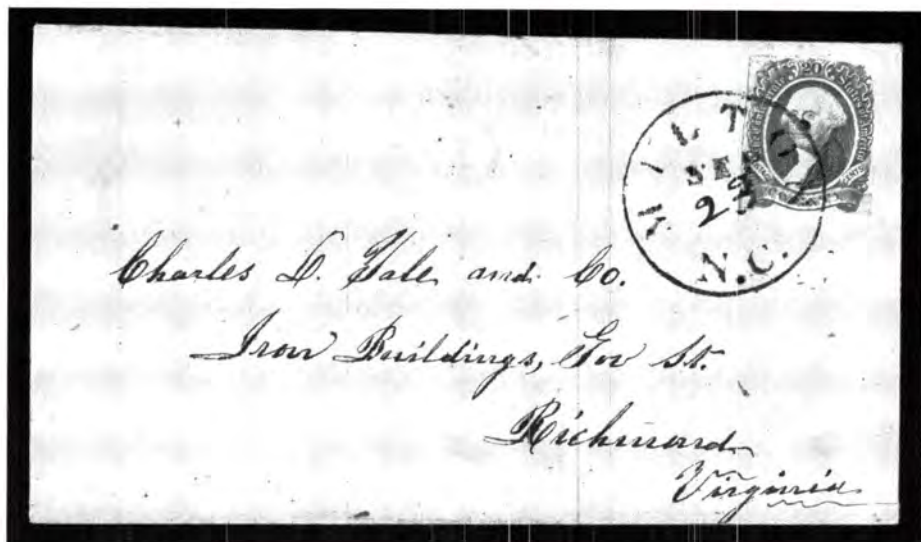 20
23
N.C.
Charles D. Yale and Co.
Iron Buildings, Gov St.
Richmond
Virginia